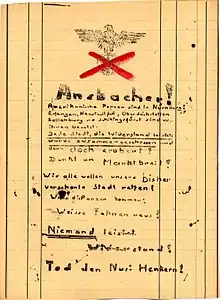 Ansbacher!
Amerikanische Panzer sind in Nürnberg!
Erlangen, Neustadt, Oberdachstetten
Rothenburg und Schillingsfürst sind von
ihnen besetzt!
Jede Stadt, die Widerstand leistete
wurde zusammengeschossen und
dann doch erobert!
Denkt an Marktbreit!
Wir alle wollen unsere bisher
verschonte Stadt retten!
kommen!
Weisse Fahnen raus!
Niemand leistet
Widerstand!
Tod den Nazi Henkern!